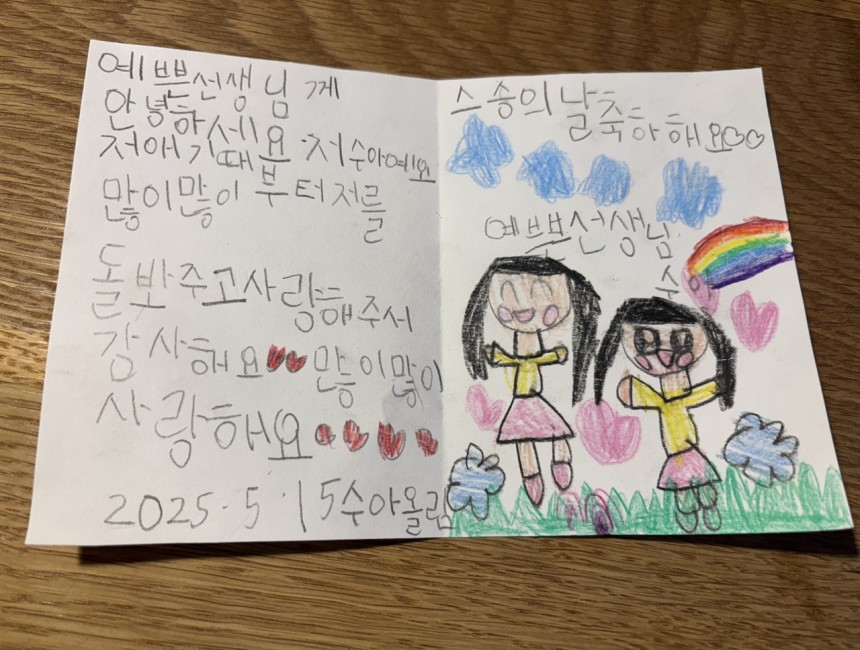 예쁜선생님께
안녕하세요
저애기때부터저를
저수아예요
많이많이
돌봐주고사랑해주서
감사해요 많이많이
사랑해요
2025.5.15수아올림
스승의날축하해요♡♡
예쁜선생님
수아